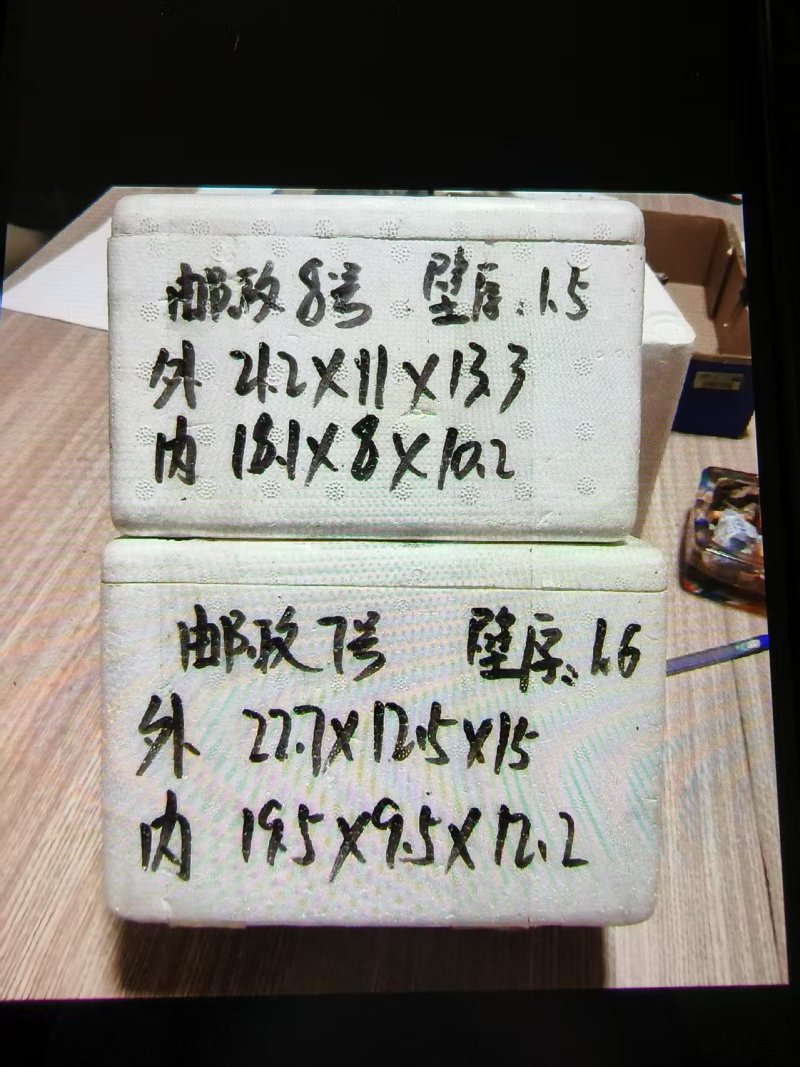 邮政8号 壁厚:1.5
外 21.2×11×13.3
内 18.1×8×10.2
邮政7号 壁厚:1.6
外 22.7×12.5×15
内 19.5×9.5×12.2